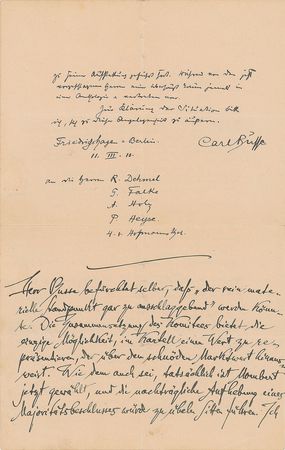 zu seiner Auffassung geführt hat. Während von den jetzt
vorgeschlagenen Herren
einer Anthologie vertreten war.
Zur Klärung der Situation bitte
ich, sich zu dieser Angelegenheit zu äußern.
Friedrichshagen-Berlin.
Carl Busse
11. III. 10.
an die Herren R. Dehmel
G. Falke
A. Holz
P. Heyse.
H. v. Hofmannsthal.
Herr Busse befürchtet selber, daß „der rein mate-
rielle Standpunkt gar zu ausschlaggebend" werden könn-
te. Die Zusammensetzung des Komitees bietet die
einzige Möglichkeit, im Kartell einen Wert zu re-
präsentieren, der über den schnöden Marktwert hinaus-
weist. Wie dem auch sei, tatsächlich ist Mombert
jetzt gewählt, und die nachträgliche Aufhebung eines
Majoritätsbeschlusses würde zu übeln Sitten führen. Ich